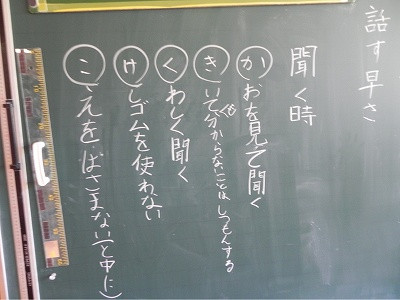 話す早さ
聞く時
かおを見て聞く
きいて分からないことはしつもんする
くわしく聞く
けしゴムを使わない
こえをはさまない(と中に)